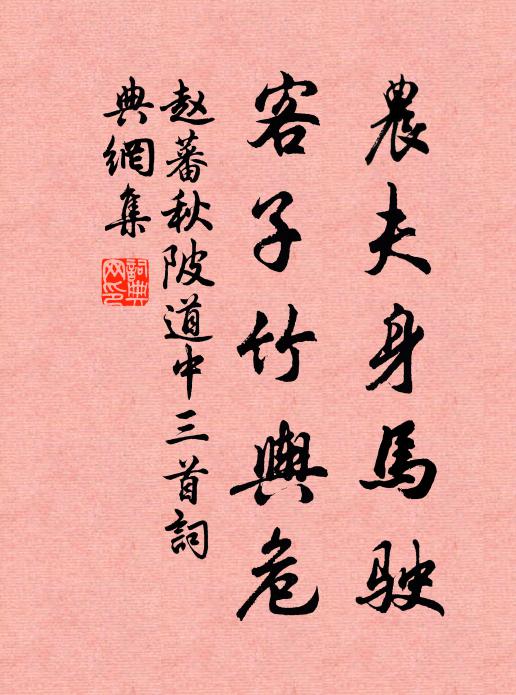 農夫身馬駛
客子竹輿危
赵蕃秋陂道中三首詞
典網集
詞典
网印